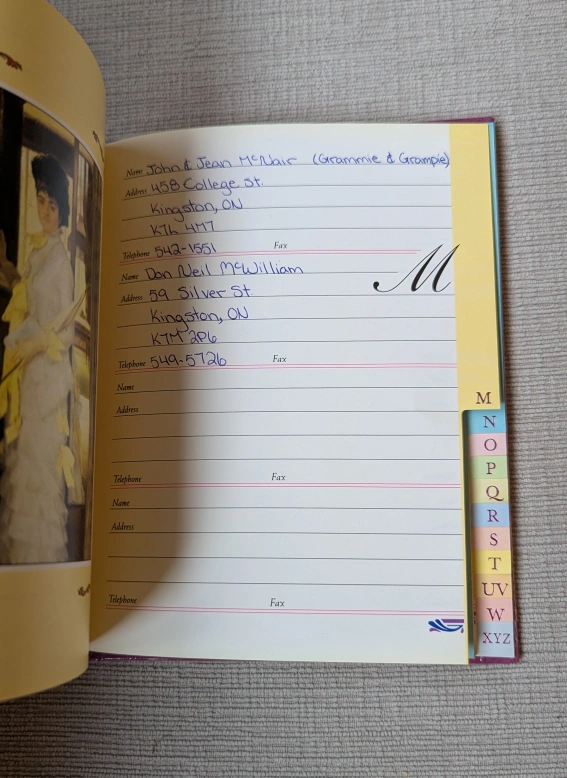 Name John & Jean McNair (Grammie & Grampie)
Address 458 College St.
Kingston, ON
K7L 4M7
Telephone 542-1551 Fax
M
Name Don Neil McWilliam
Address 59 Silver St
Kingston, ON
K7M 2P6
Telephone 549-5726 Fax
Name
Address
Telephone Fax
Name
Address
Telephone Fax
M
N
O
P
Q
R
S
T
UV
W
XYZ